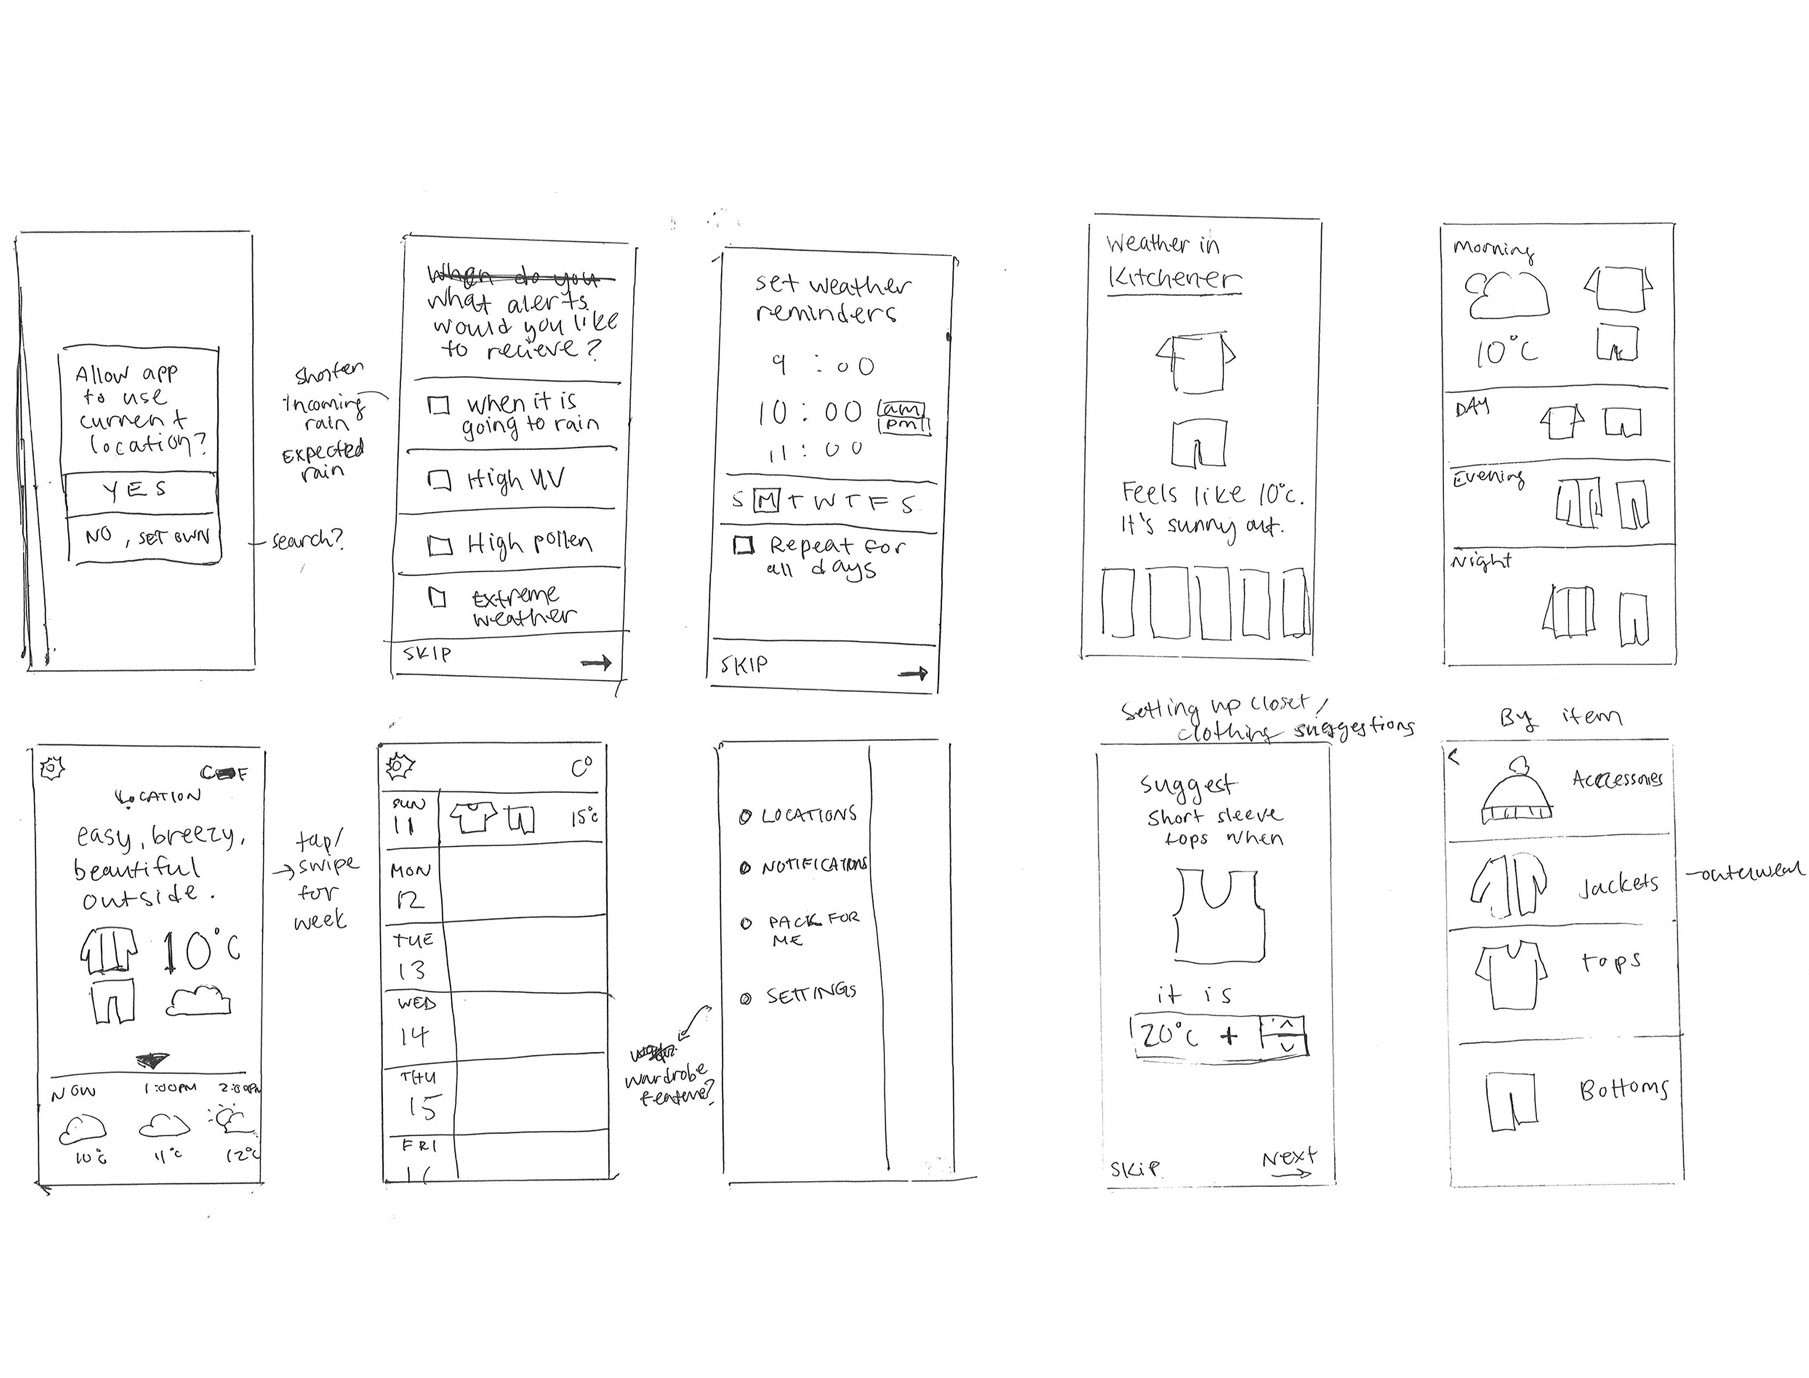 Allow app
to use
current
location?
YES
NO, SET OWN
search?
Shorten
Incoming
rain
Expected
rain
When do you
what alerts
would you like
to recieve?
when it is
going to rain
High UV
High pollen
Extreme
weather
SKIP
set weather
reminders
9 : 00
10 : 00 am
pm
11 : 00
S M T W T F S
Repeat for
all days
SKIP
Weather in
Kitchener
Feels like 10°c.
It's sunny out.
Morning
10°C
DAY
Evening
Night
C F
LOCATION
easy, breezy,
beautiful
outside.
10°C
NOW 1:00PM 2:00PM
10°C 11°C 12°C
tap/
swipe
for
week
C°
SUN
11
15°C
MON
12
TUE
13
WED
14
THU
15
FRI
16
LOCATIONS
NOTIFICATIONS
PACK FOR
ME
SETTINGS
wardrobe
feature?
Setting up closet/
clothing suggestions
suggest
short sleeve
tops when
it is
20°C +
SKIP
Next
By item
Accessories
Jackets
outerwear
tops
Bottoms